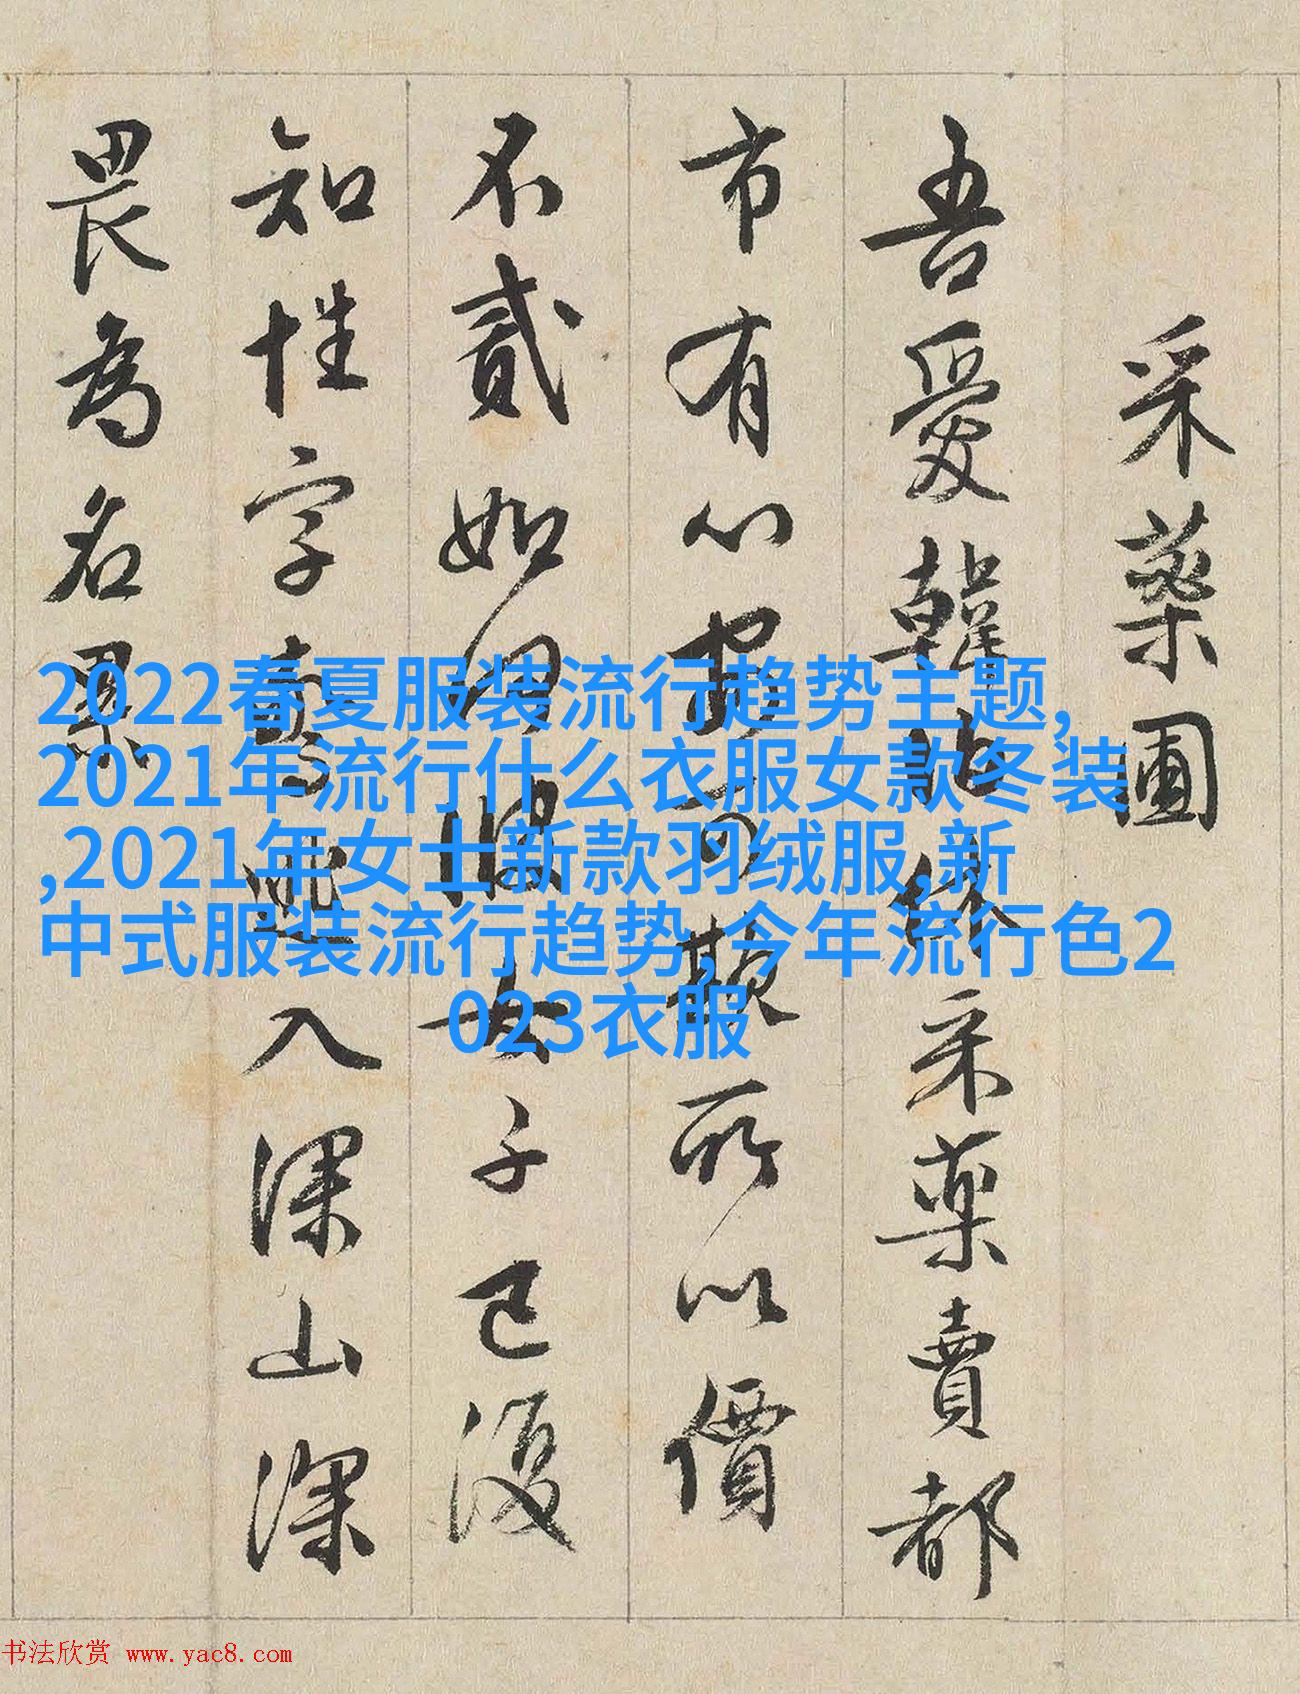 采藥圃
吾愛韓伯休采藥賣都
市有心安可欺所以價
不貳如何彼女子已復
知性字驚逃入深山深
畏為名累
2022春夏服装流行趋势主题,
2021年流行什么衣服女款冬装
,2021年女士新款羽绒服,新
中式服装流行趋势,今年流行色2
023衣服
书法欣赏 www.yac8.com